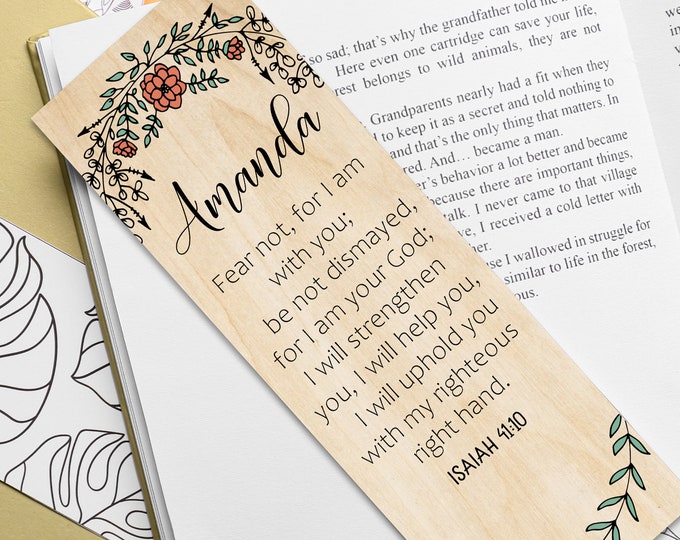 Amanda
Fear not, for I am
with you;
be not dismayed,
for I am your God;
I will strengthen
you, I will help you,
I will uphold you
with my righteous
right hand.
ISAIAH 41:10
so sad; that's why the grandfather told me
Here even one cartridge can save your life,
rest belongs to wild animals, they are not
Grandparents nearly had a fit when they
to keep it as a secret and told nothing to
and that's the only thing that matters. In
red. And… became a man.
r's behavior a lot better and became
because there are important things,
talk. I never came to that village
, I received a cold letter with
her.
se I wallowed in struggle for
similar to life in the forest,